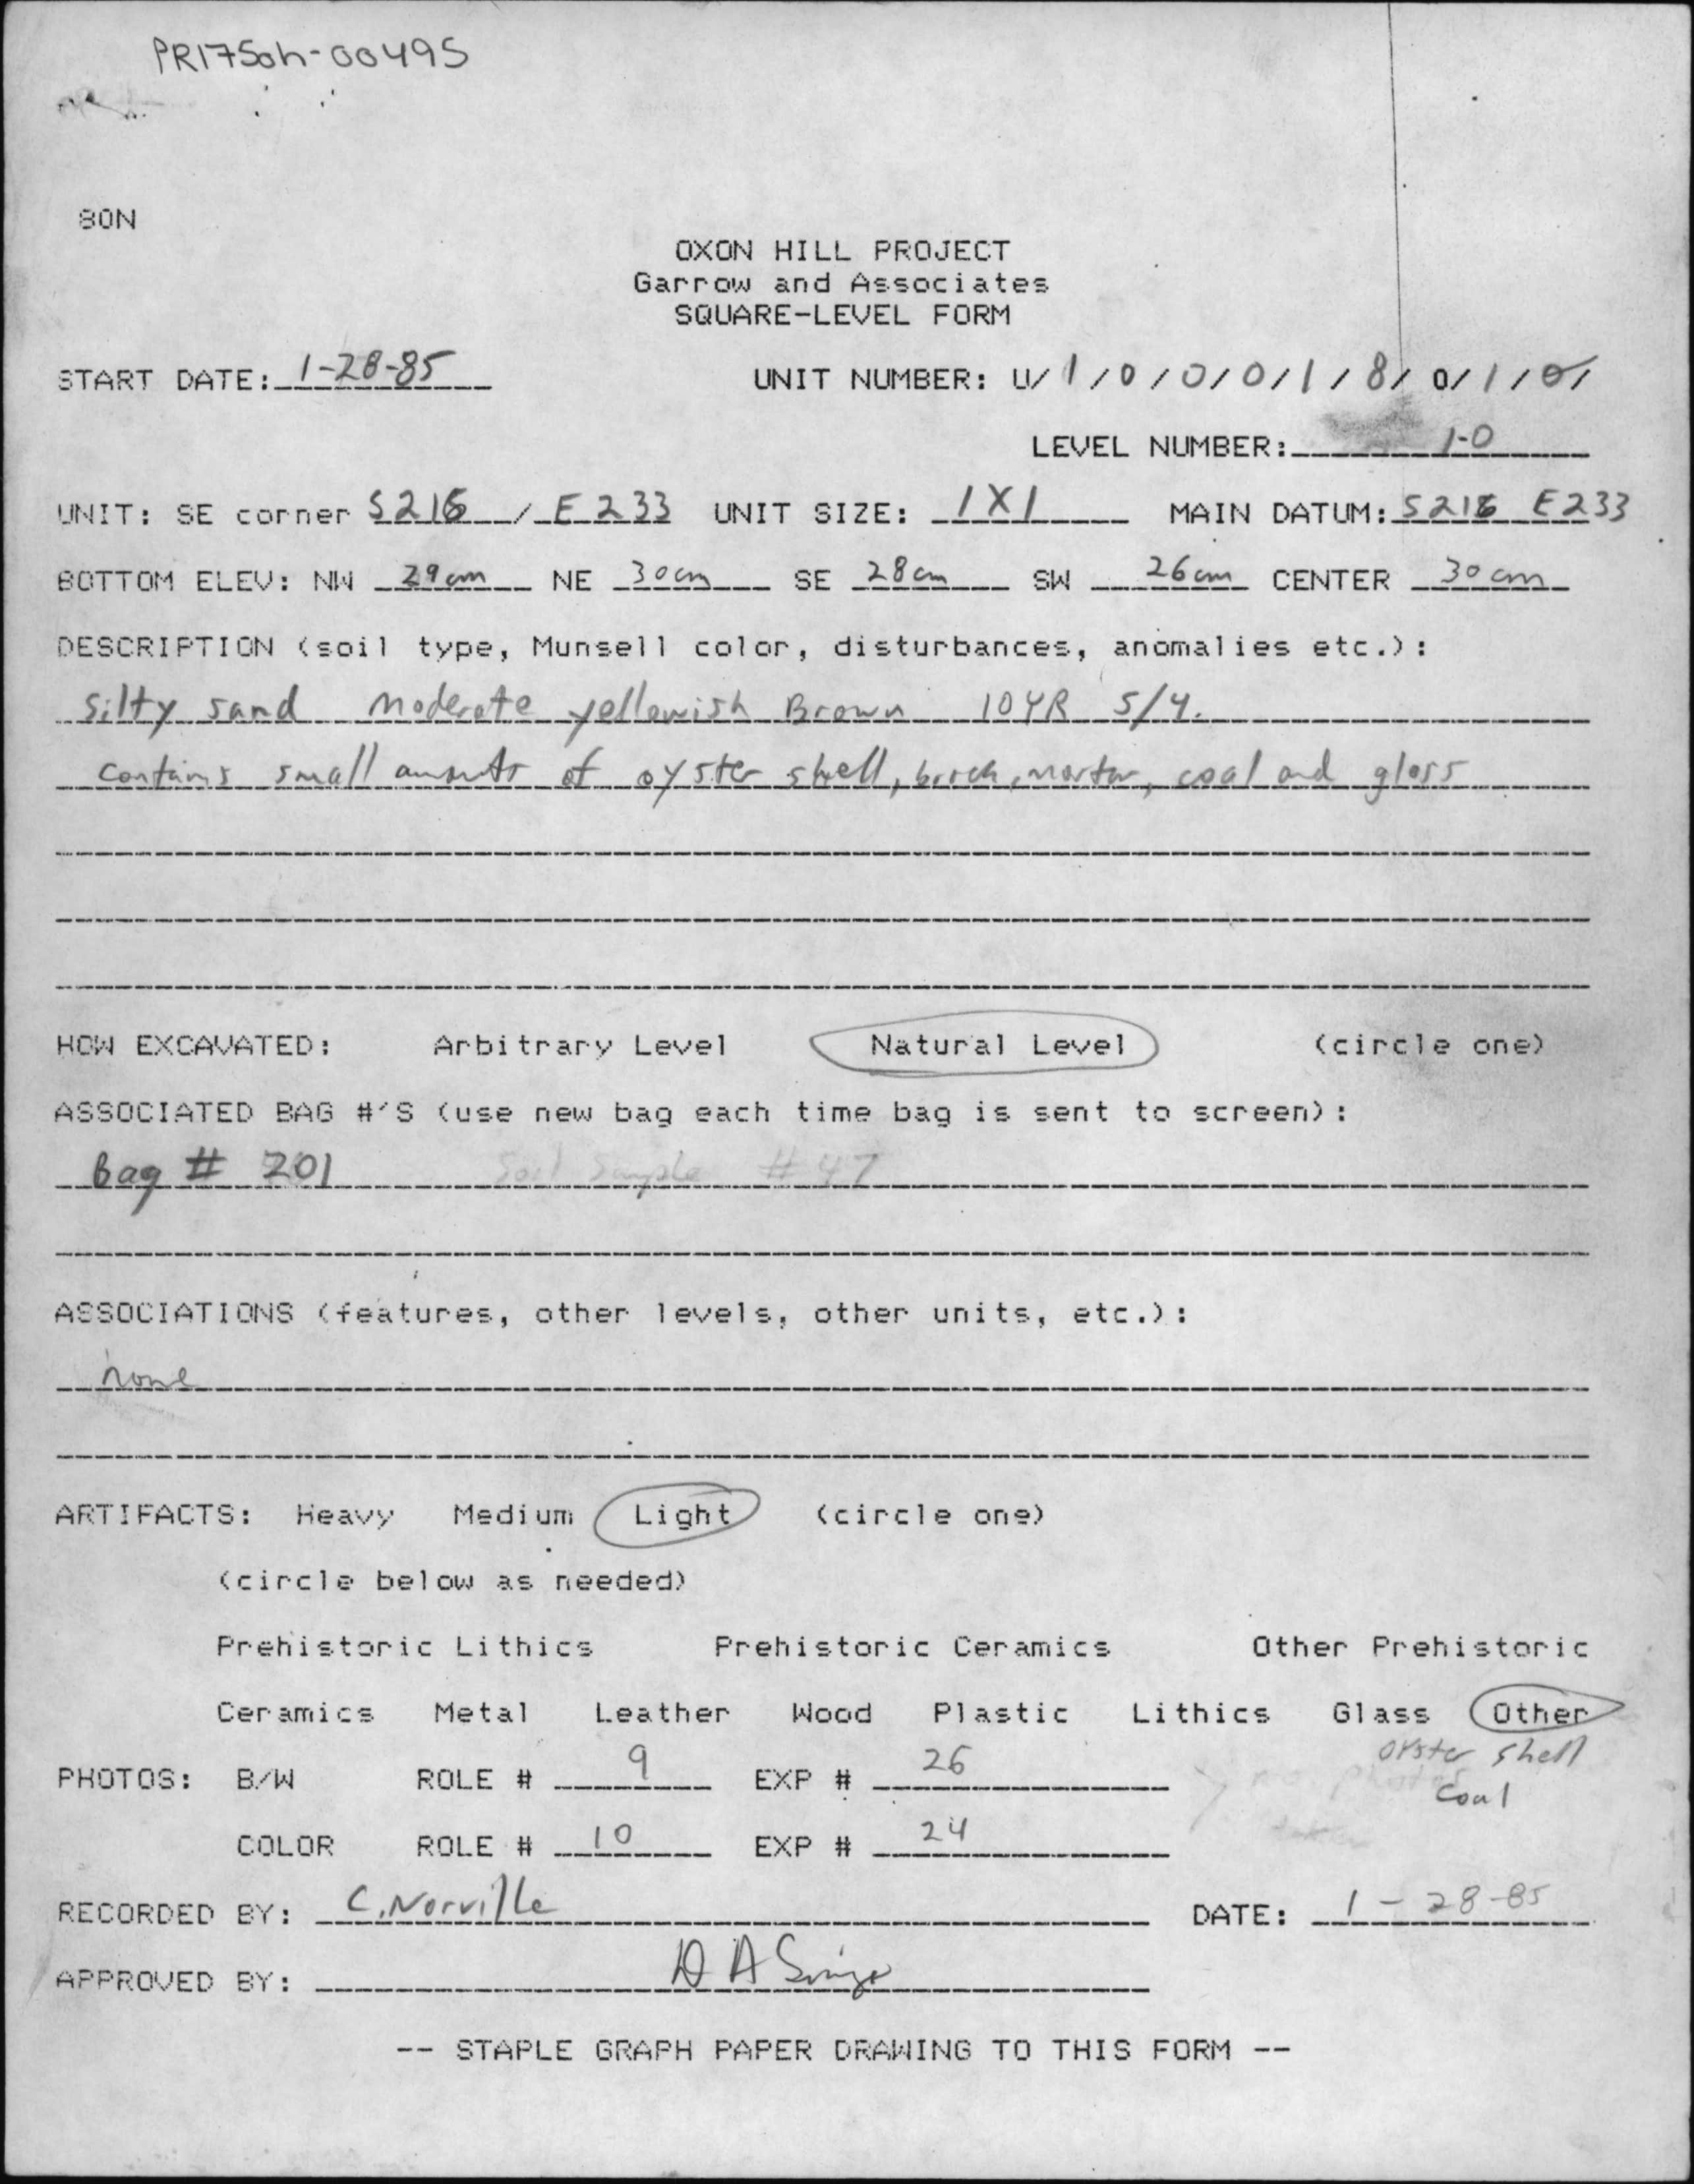 PR175oh-00495
80N
OXON HILL PROJECT
Garrow and Associates
SQUARE-LEVEL FORM
START DATE: 1-28-85 UNIT NUMBER: U/1/0/0/0/1/8/0/1/0/
LEVEL NUMBER: 1-0
UNIT: SE corner S216 / E233 UNIT SIZE: 1X1 MAIN DATUM: S216 E233
BOTTOM ELEV: NW 29cm NE 30cm SE 28cm SW 26cm CENTER 30cm
DESCRIPTION (soil type, Munsell color, disturbances, anomalies etc.):
Silty sand Moderate yellowish Brown 10YR 5/4.
contains small amounts of oyster shell, brick, mortar, coal and glass
HOW EXCAVATED: Arbitrary Level Natural Level (circle one)
ASSOCIATED BAG #'S (use new bag each time bag is sent to screen):
Bag # 201 Soil Sample #47
ASSOCIATIONS (features, other levels, other units, etc.):
none
ARTIFACTS: Heavy Medium Light (circle one)
(circle below as needed)
Prehistoric Lithics Prehistoric Ceramics Other Prehistoric
Ceramics Metal Leather Wood Plastic Lithics Glass Other
oyster shell
PHOTOS: B/W ROLE # 9 EXP # 26 no photos coal
taken
COLOR ROLE # 10 EXP # 24
RECORDED BY: C. Norville DATE: 1-28-85
APPROVED BY: D A
-- STAPLE GRAPH PAPER DRAWING TO THIS FORM --